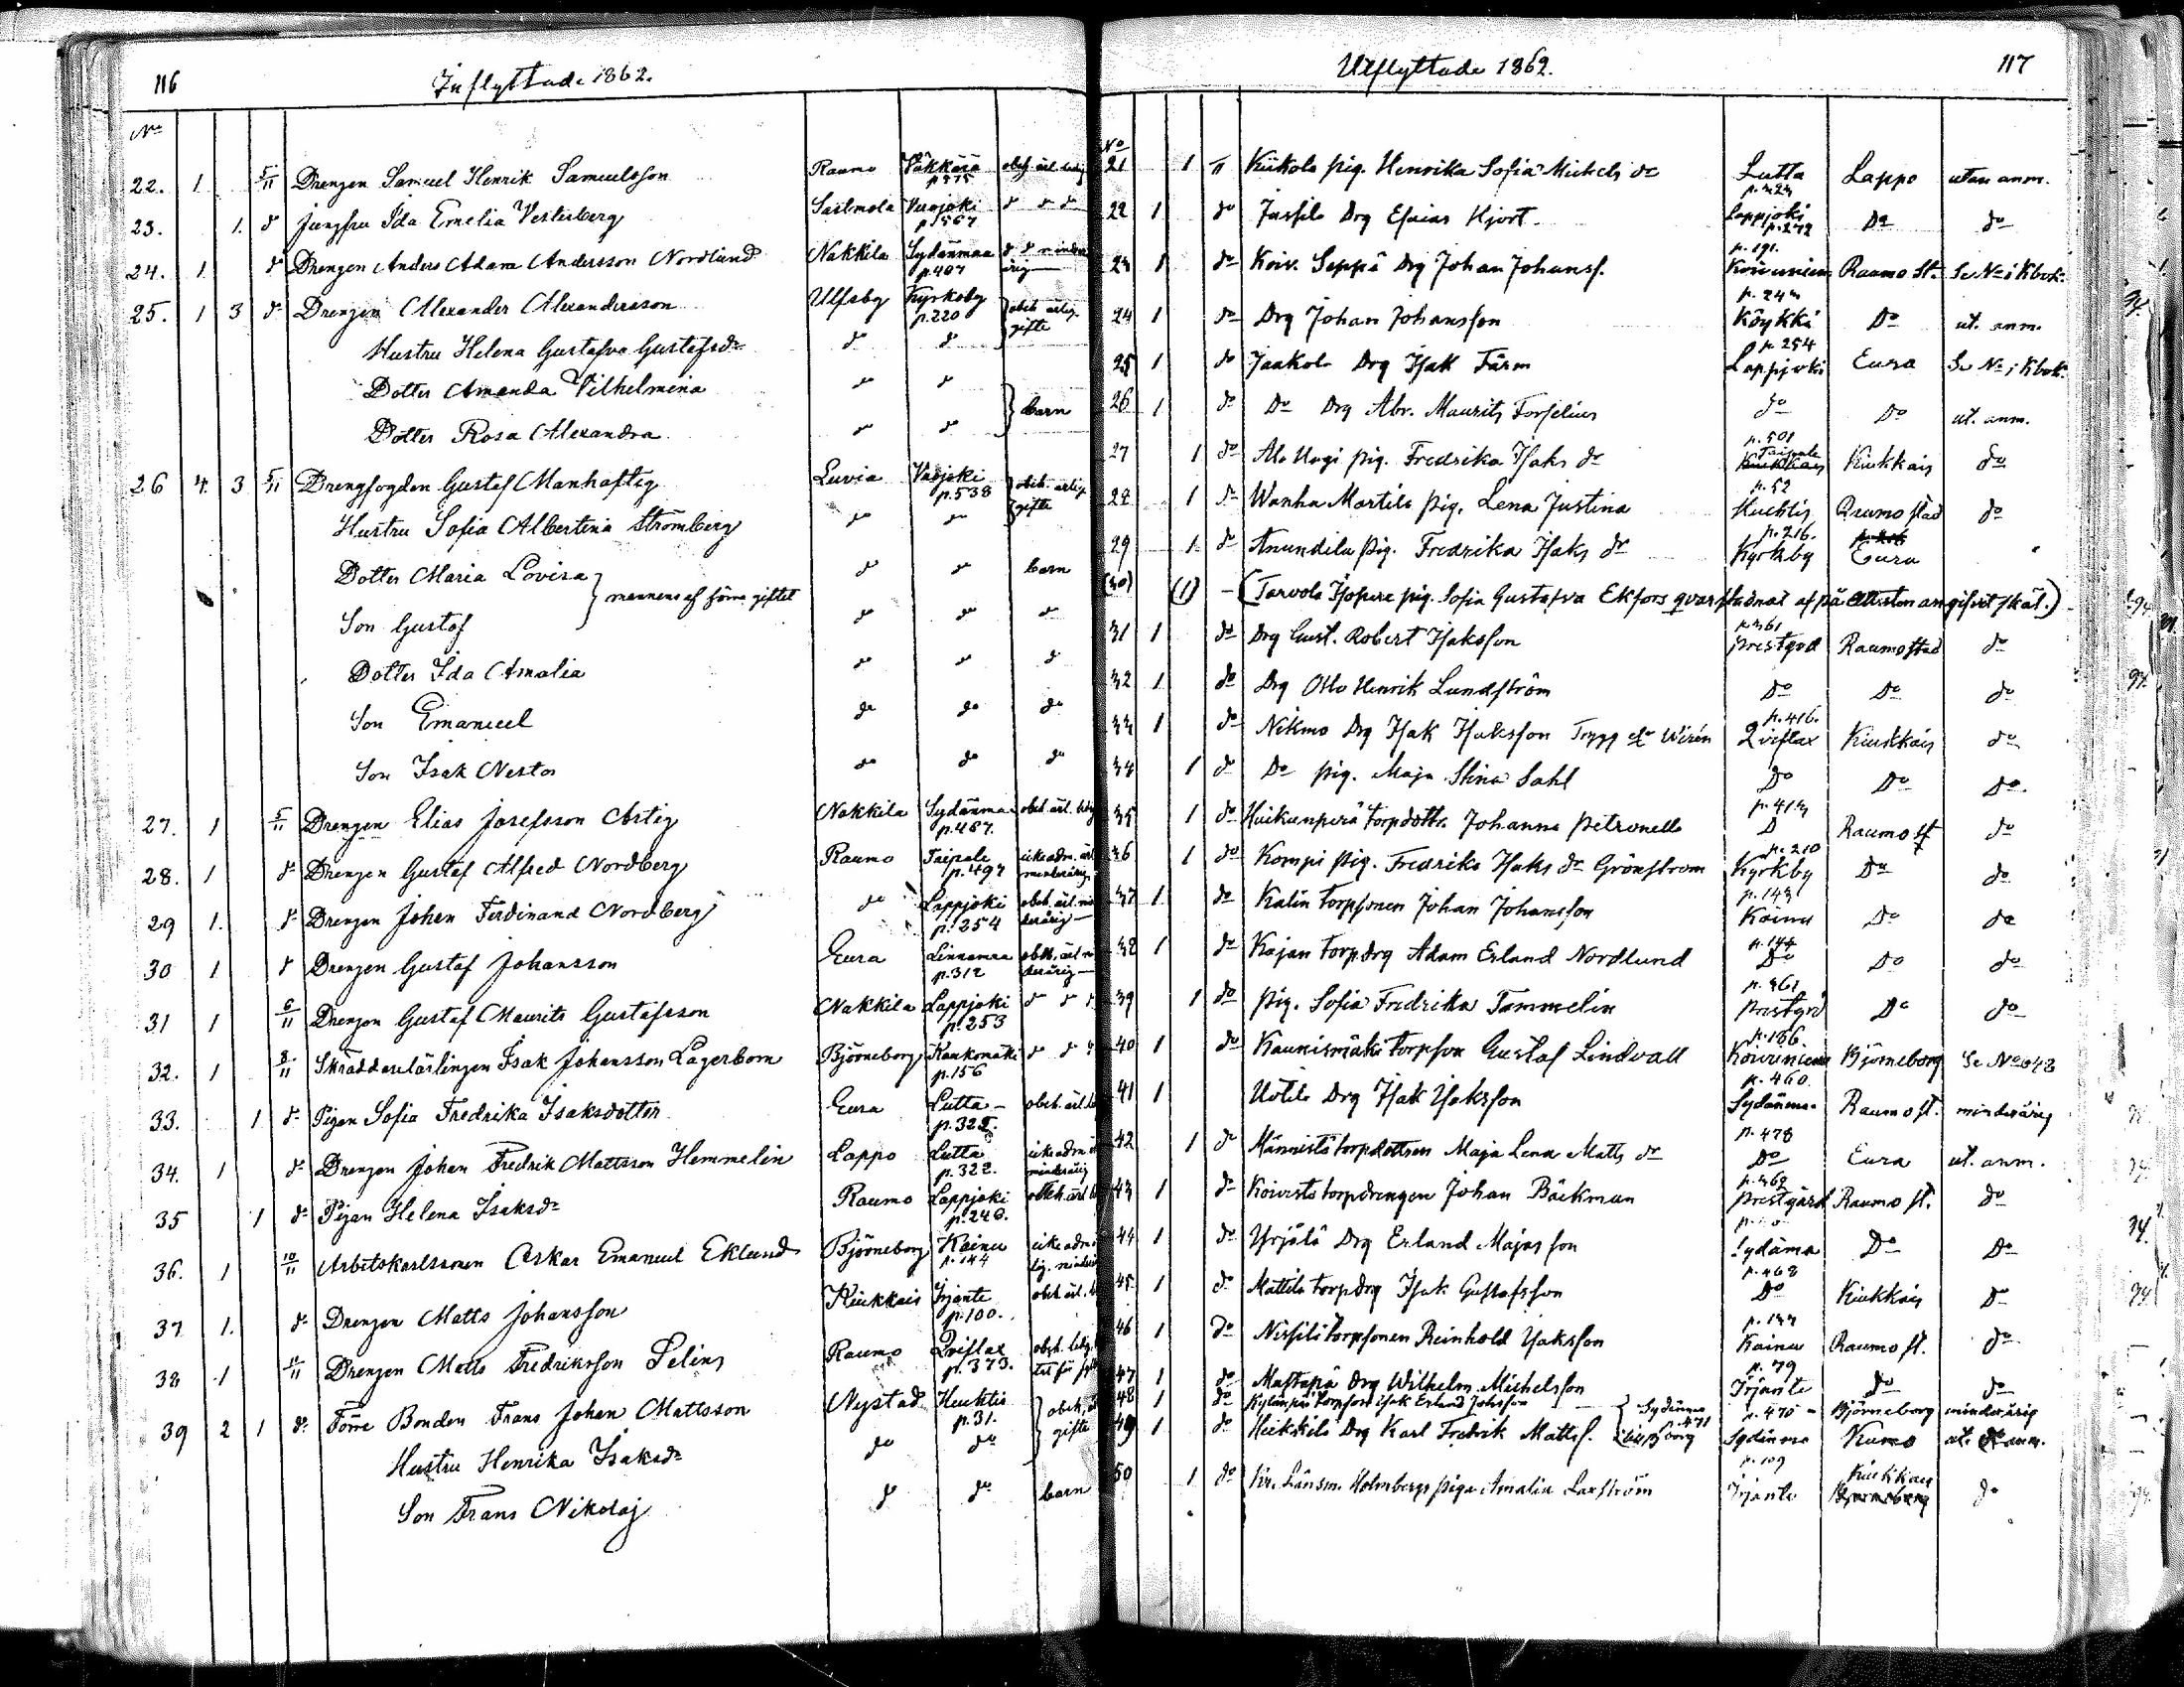 116 Inflyttade 1862.
No
22. 1 5/11 Drengen Samuel Henrik Samuelsson Raumo Väkkärä obeh. ärl. ledig
23. 1. do Jungfru Ida Emelia Vesterberg Vuojoki p. 567 do do do
24. 1 do Drengen Anders Adam Andersson Nordlund Nakkila Sydänmaa p. 487 do do minder årig
25. 1 3 do Drengen Alexander Alexandersson Ulfsby Kyrkoby p. 220 obeh. ärlig gifte
Hustru Helena Gustafva Gustafsdr do do
Dotter Amanda Vilhelmina do do
Dotter Rosa Alexandra do do barn
26 4 3 5/11 Drengfogden Gustaf Manhaftig Luvia Vuojoki p. 538 obeh. ärlig gifte
Hustru Sofia Albertina Strömberg do do
Dotter Maria Lovisa do do barn
mannens af förra giftet
Son Gustaf do do do
Dotter Ida Amalia do do do
Son Emanuel do do do
Son Isak Nestor do do do
27. 1 5/11 Drengen Elias Josefsson Artig Nakkila Sydänmaa p. 487. obeh. ärl. ledig
28. 1 do Drengen Gustaf Alfred Nordberg Raumo Taipale p. 497 icke adm. ärl minderårig
29 1. do Drengen Johan Ferdinand Nordberg do Lappjoki p. 254 obeh. ärl. min derårig
30 1 do Drengen Gustaf Johansson Eura Linnamaa p. 312 obeh. ärl. min derårig
31 1 6/11 Drengen Gustaf Maurits Gustafsson Nakkila Lappjoki p. 253 do do do
32. 1 8/11 Skräddarelärlingen Isak Johansson Lagerbom Björneborg Kaukomäki p. 156 do do
33. 1 do Pigan Sofia Fredrika Isaksdotter Eura Lutta obeh. ärl.
34. 1 do Drengen Johan Fredrik Mattsson Hemmelin Lappo Lutta p. 322. icke adm. minderårig
35 1 do Pigan Helena Isaksdr Raumo Lappjoki p. 240. obeh. ärl.
36. 1 10/11 Arbetskarlssonen Oskar Emanuel Eklund Björneborg Kainu p. 144 icke adm.
37 1. do Drengen Matts Johansson Kiukkais Irjante p. 100. obeh. ärl.
38 1 11/11 Drengen Matts Fredriksson Selins Raumo Qviflax p. 373. obeh. ledig
39 2 1 do Förre Bonden Frans Johan Mattsson Nystad Huchtis p. 31. obeh. gifte
Hustru Henrika Isaksdr do do
Son Frans Nikolaj do do barn
Utflyttade 1862. 117
No
21 1 Kiikola pig. Henrika Sofia Michels dr Lutta Lappo utan anm.
22 1 do Jussila Drg Esaias Hjort Lappjoki p. 272 Do do
23 1 do Koiv. Seppä Drg Johan Johanss. p. 191. Koivuniemi Raumo st. Se No i Kbok.
24 1 do Drg Johan Johansson Köykkä Do ut. anm.
25 1 do Jaakola Drg Isak Färm p. 254 Lappjoki Eura Se No i Kbok.
26 1 do Do Drg Abr. Maurits Forselius do Do ut. anm.
27 1 do Ala Uogi pig. Fredrika Isaks dr p. 501 Taipale Kiukkais do
28 1 do Wanha Martila pig. Lena Justina p. 52 Huchtis Raumo stad do
29 1 do Anundila pig. Fredrika Isaks dr p. 216. Kyrkby Eura
(30) (1) - (Tarvola Isopere pig. Sofia Gustafva Ekfors qvarstadnat af på attesten angifvit skäl.)
31 1 do Drg Gust. Robert Isaksson p. 361 Prestgrd Raumo stad do
32 1 do Drg Otto Henrik Lundström Do Do do
33 1 do Nikmo Drg Isak Isaksson Trygg el. Wirén p. 416. Qviflax Kiukkais do
34 1 do Do pig. Maja Stina Sahl Do Do Do.
35 1 do Huikunperä torpdottr. Johanna Petronella p. 413 D Raumo st do
36 1 do Kompi pig. Fredrika Isaks dr Grönstrom p. 210 Kyrkby Do do
37 1 do Kalin torpsonen Johan Johansson p. 143 Kainu Do do
38 1 do Kajan torp. drg Adam Erland Nordlund p. 144 Do Do do
39 1 do pig. Sofia Fredrika Tammelin p. 361 Prestgrd Do do
40 1 do Kaunismäki torpson Gustaf Lindvall p. 186 Koivuniemi Björneborg Se No
41 1 Uotila Drg Isak Isaksson p. 460. Sydänma Raumo st. minderårig
42 1 do Männistö torpdottren Maja Lena Matts dr p. 478 Do Eura ut. anm.
43 1 do Koivisto torpdrengen Johan Bäckman Prestgård Raumo st. do
44 1 do Yrjölä Drg Erland Majasson Sydäma Do Do
45 1 do Mattila torpdrg Isak Gustafsson p. 468 Do Kiukkais Do
46 1 do Nissilä torpsonen Reinhold Isaksson Kainu Raumo st. do
47 1 do Mastapä Drg Wilhelm Michelsson p. 79 Irjante do do
48 1 do Kylänpää torpson Isak Erland Johsson Sydänma 471 p. 470 Björneborg minderårig
49 1 do Heikkilä Drg Karl Fredrik Matts s. Sydänma Kumo ut. anm.
50 1 do Kr. Länsm. Holmbergs piga Amalia Laxström p. 109 Irjante Kiukkais do